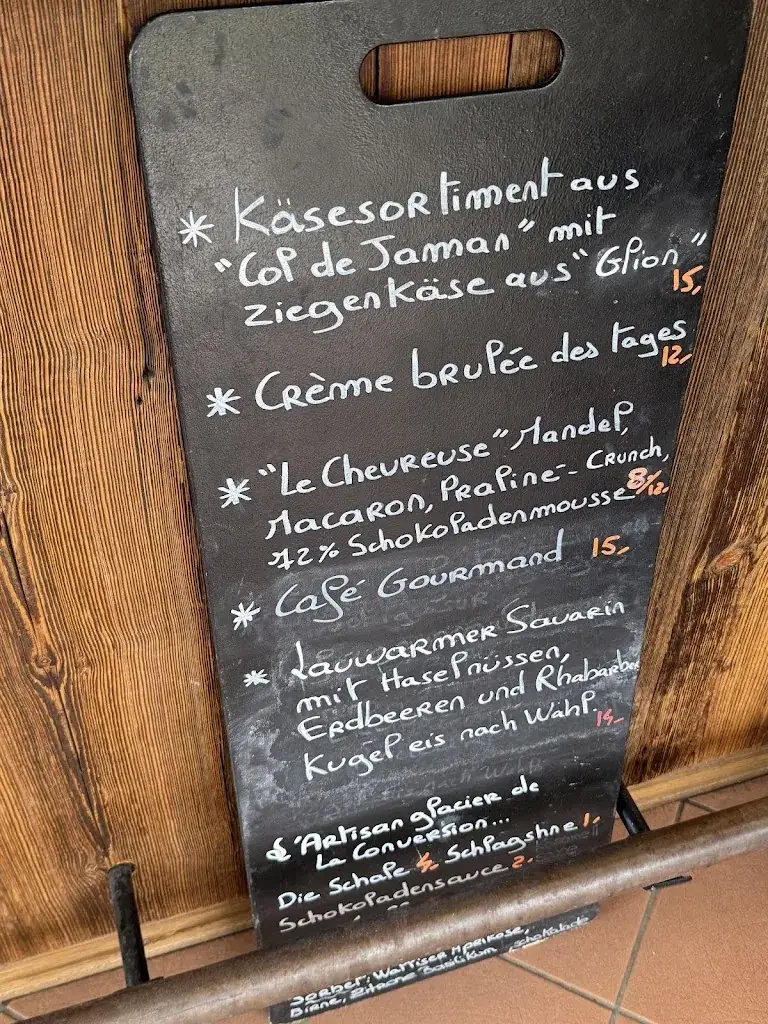 * Käsesortiment aus
"Col de Jaman" mit
ziegenkäse aus "Glion"
15,
* Crème brulée des tages
12,-
* "Le Chevreuse" Mandel,
Macaron, Praline - Crunch,
72% Schokoladenmousse 8/12.
* Café Gourmand 15,-
* Lauwarmer Savarin
mit Haselnüssen,
Erdbeeren und Rhabarber
Kugel eis nach Wahl. 14,-
L'Artisan glacier de
La Conversion...
Die Schale 4,- Schlagshne 1.
Schokoladensauce 2.
Sorbet; Walliser Aprikose,
Birne, Zitrone Basilikum, schokolade